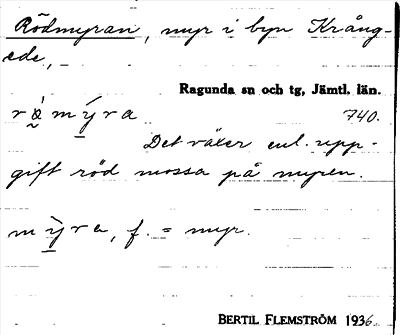 Rödmyran, myr i byn Krång-
ede,
Ragunda sn och tg, Jämtl. län.
740.
Det växer enl. upp-
gift röd mossa på myren.
f. = myr.
BERTIL FLEMSTRÖM 1936